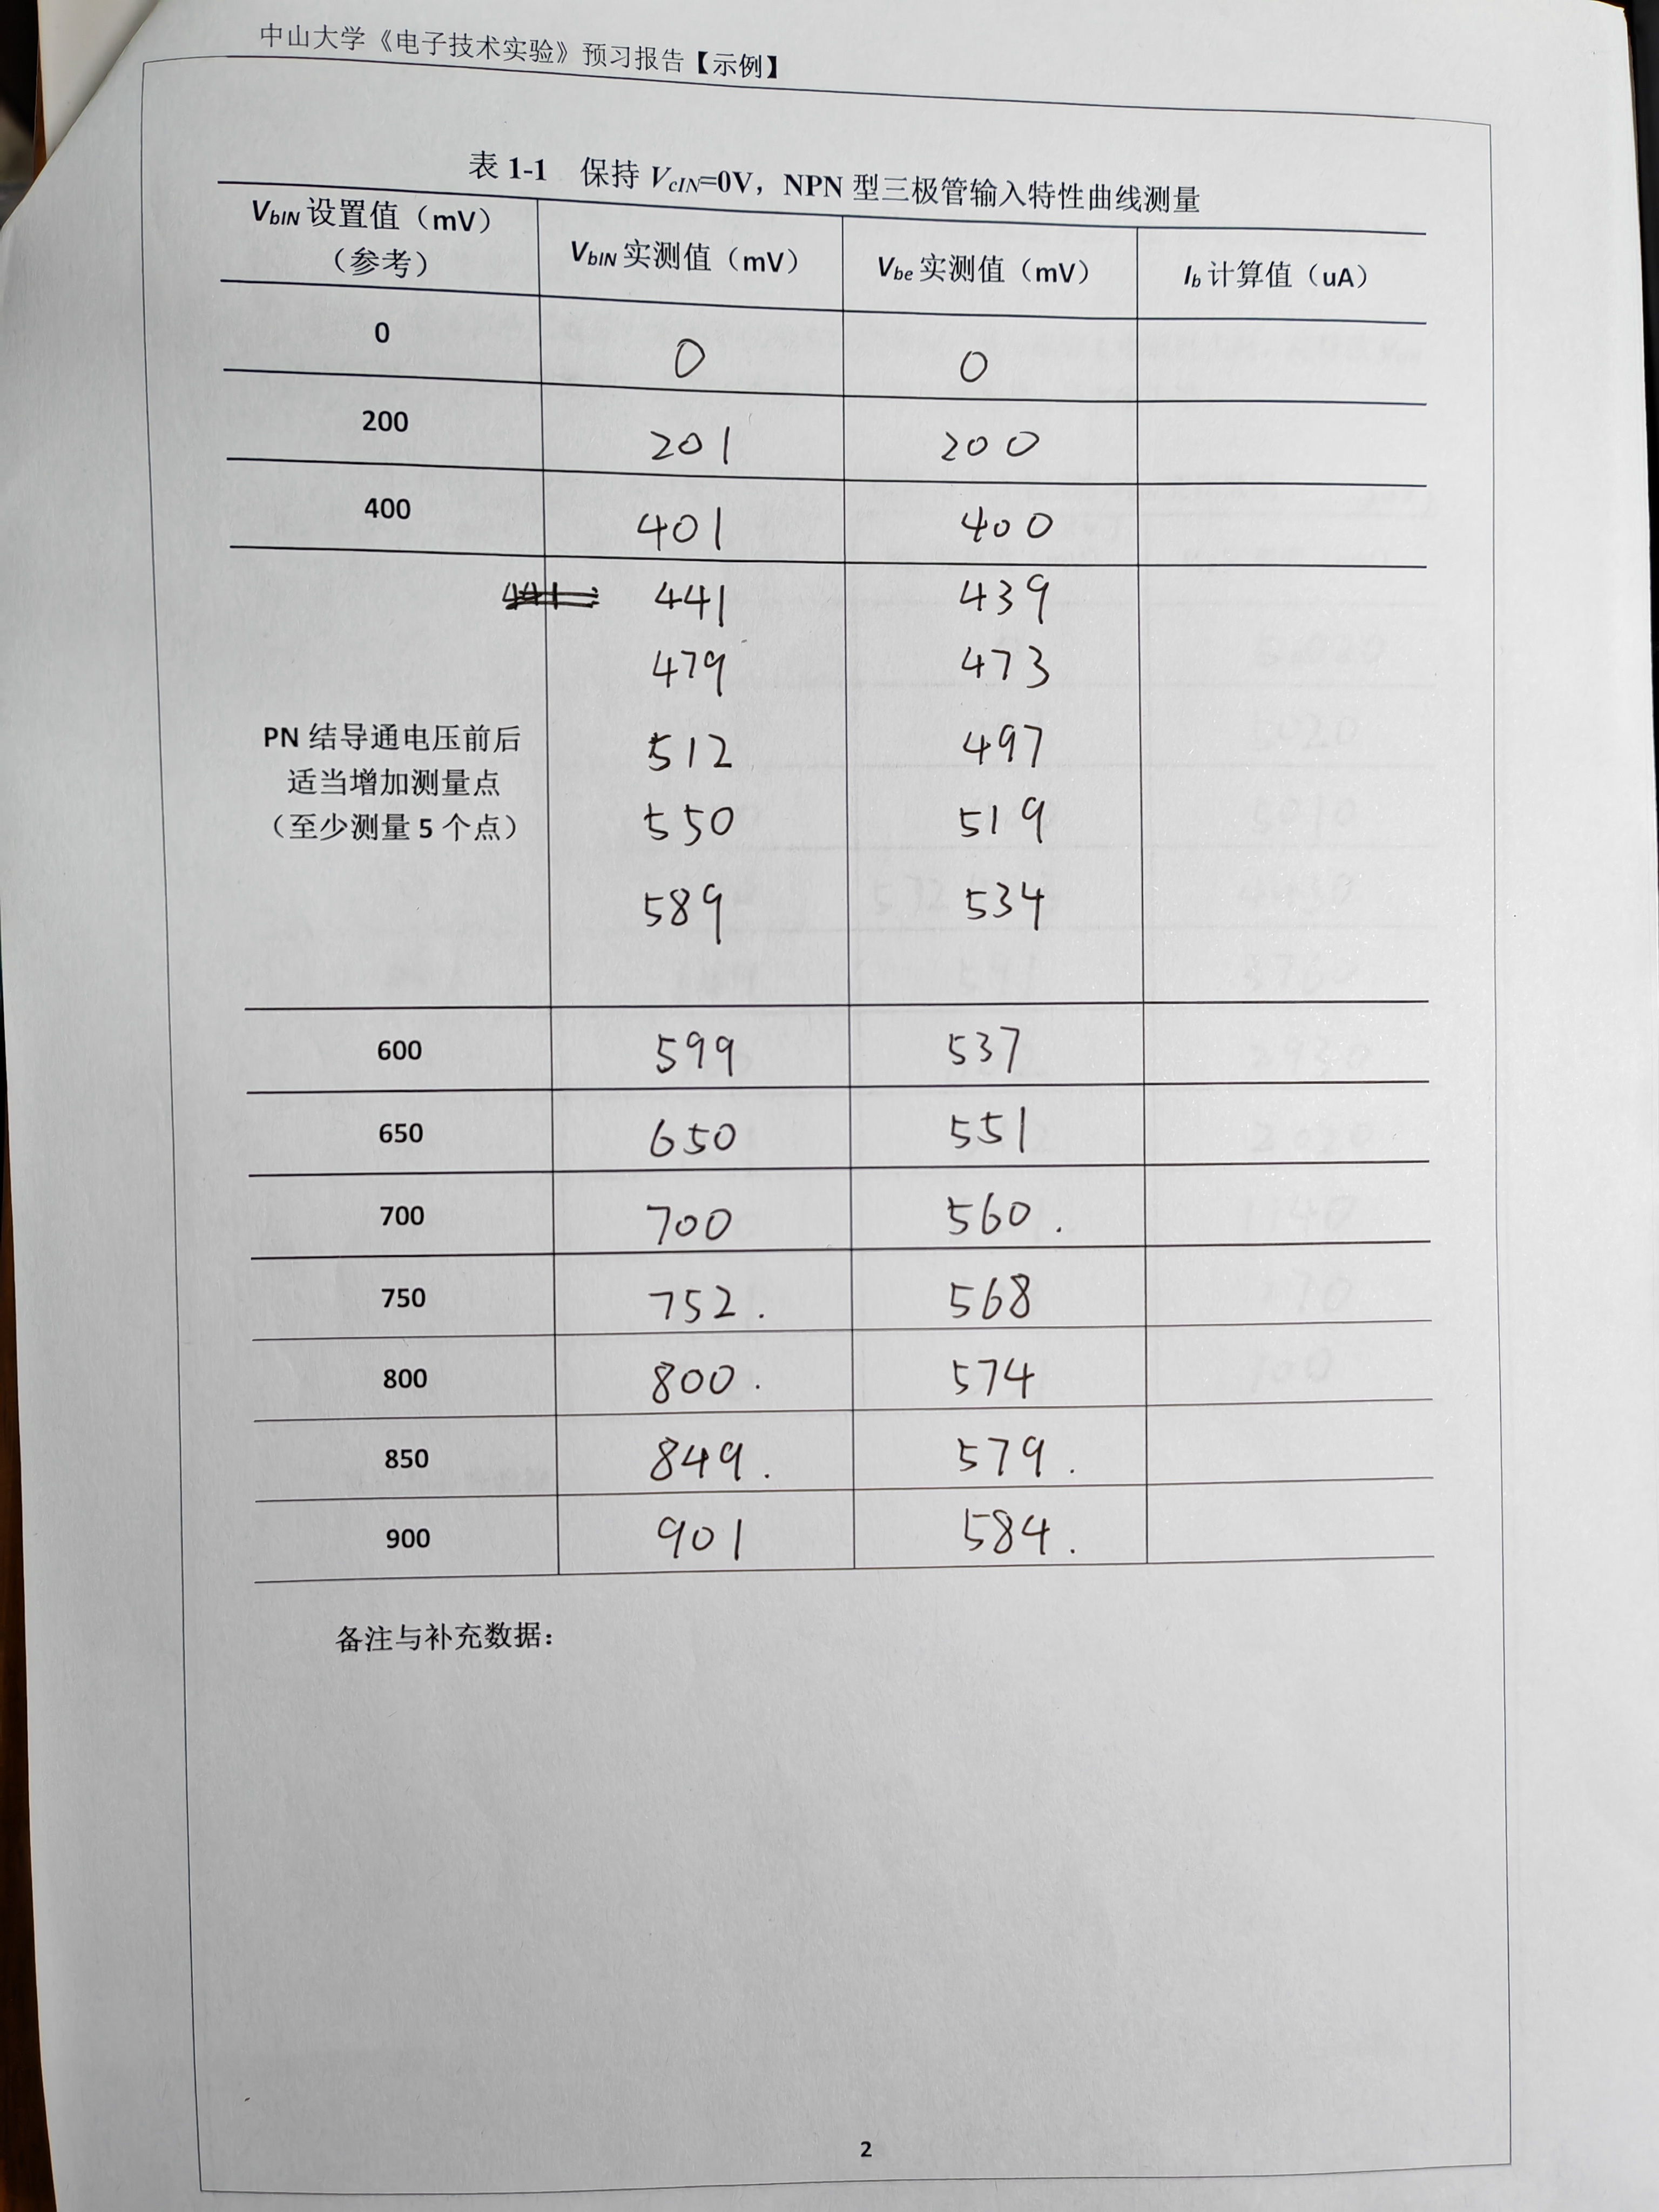 中山大学《电子技术实验》预习报告【示例】
表 1-1 保持 VcIN=0V，NPN 型三极管输入特性曲线测量
VbIN 设置值（mV）（参考） VbIN 实测值（mV） Vbe 实测值（mV） Ib 计算值（uA）
0 0 0
200 201 200
400 401 400
441 439
479 473
PN 结导通电压前后 512 497
适当增加测量点
（至少测量 5 个点） 550 519
589 534
600 599 537
650 650 551
700 700 560.
750 752. 568
800 800. 574
850 849. 579.
900 901 584.
备注与补充数据：
2